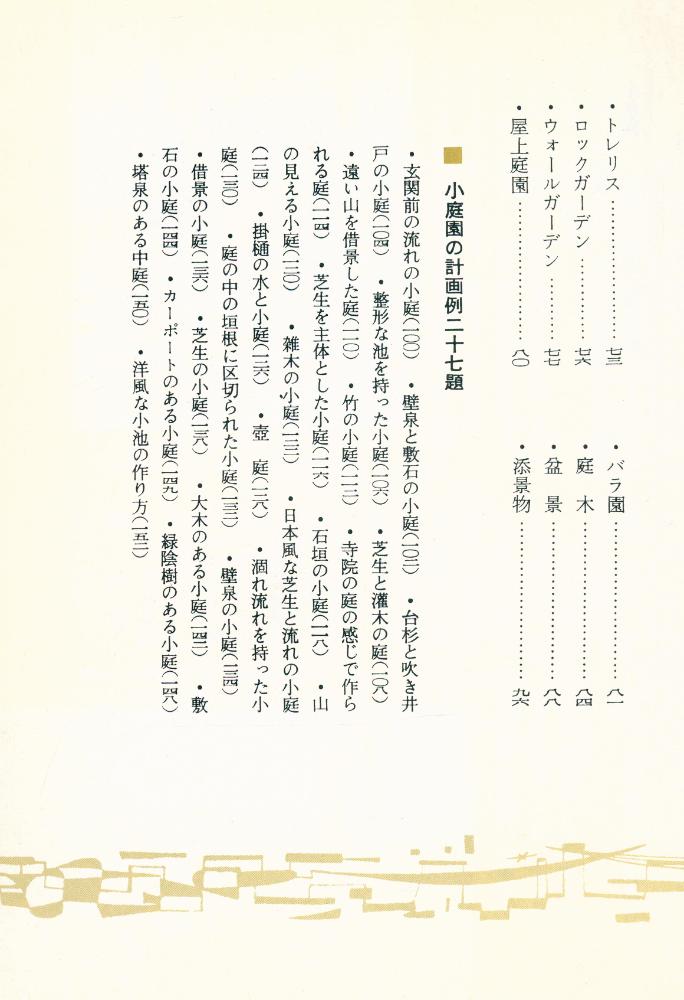 ・トレリス……………………七三
・ロックガーデン……………七六
・ウォールガーデン…………七七
・屋上庭園……………………八〇
・バラ園………………………八一
・庭　木………………………八四
・盆　景………………………八八
・添景物………………………九六
■ 小庭園の計画例二十七題
・玄関前の流れの小庭(一〇〇)　・壁泉と敷石の小庭(一〇二)　・台杉と吹き井
戸の小庭(一〇四)　・整形な池を持った小庭(一〇六)　・芝生と灌木の庭(一〇八)
・遠い山を借景した庭(一一〇)　・竹の小庭(一一二)　・寺院の庭の感じで作ら
れる庭(一一四)　・芝生を主体とした小庭(一一六)　・石垣の小庭(一一八)　・山
の見える小庭(一二〇)　・雑木の小庭(一二二)　・日本風な芝生と流れの小庭
(一二四)　・掛樋の水と小庭(一二六)　・壺　庭(一二八)　・涸れ流れを持った小
庭(一三〇)　・庭の中の垣根に区切られた小庭(一三二)　・壁泉の小庭(一三四)
・借景の小庭(一三六)　・芝生の小庭(一三八)　・大木のある小庭(一四二)　・敷
石の小庭(一四四)　・カーポートのある小庭(一四九)　・緑陰樹のある小庭(一四八)
・塔泉のある中庭(一五〇)　・洋風な小池の作り方(一五二)